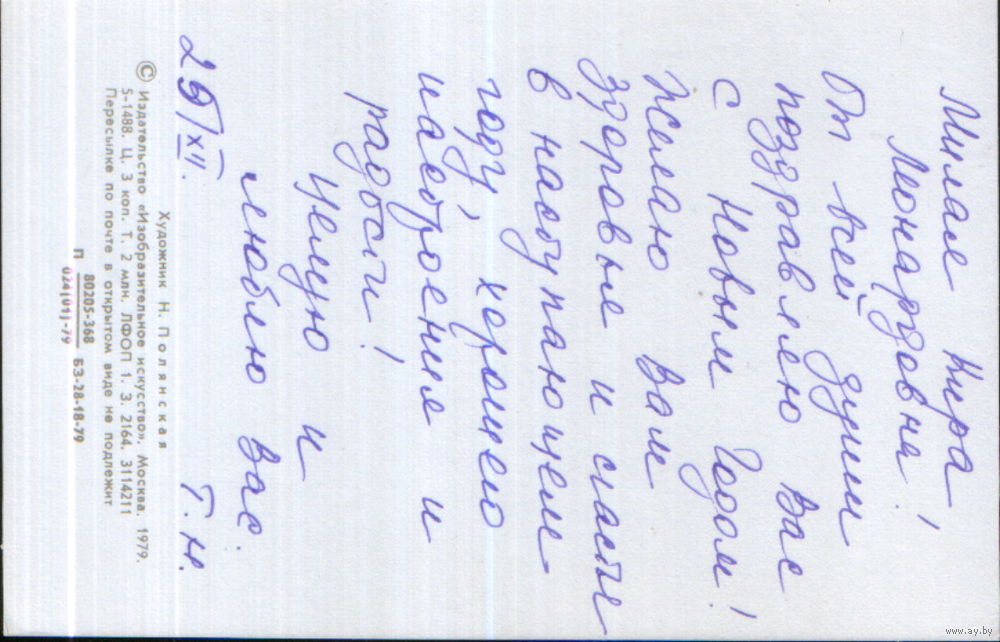 Милая Кира
Леонардовна!
От всей души
поздравляю Вас
с Новым Годом!
Желаю Вам
здоровья и счастья
в наступающем
году, хорошего
настроения и
радости!
Целую и
люблю Вас.
25/XII. Т. Н.
Художник Н. Полянская
© Издательство «Изобразительное искусство». Москва. 1979.
5-1488. Ц. 3 коп. Т. 2 млн. ЛФОП 1. З. 2164. 3114211
Пересылке по почте в открытом виде не подлежит
П 80205-368 БЗ-28-18-79
024(01)-79
www.ay.by